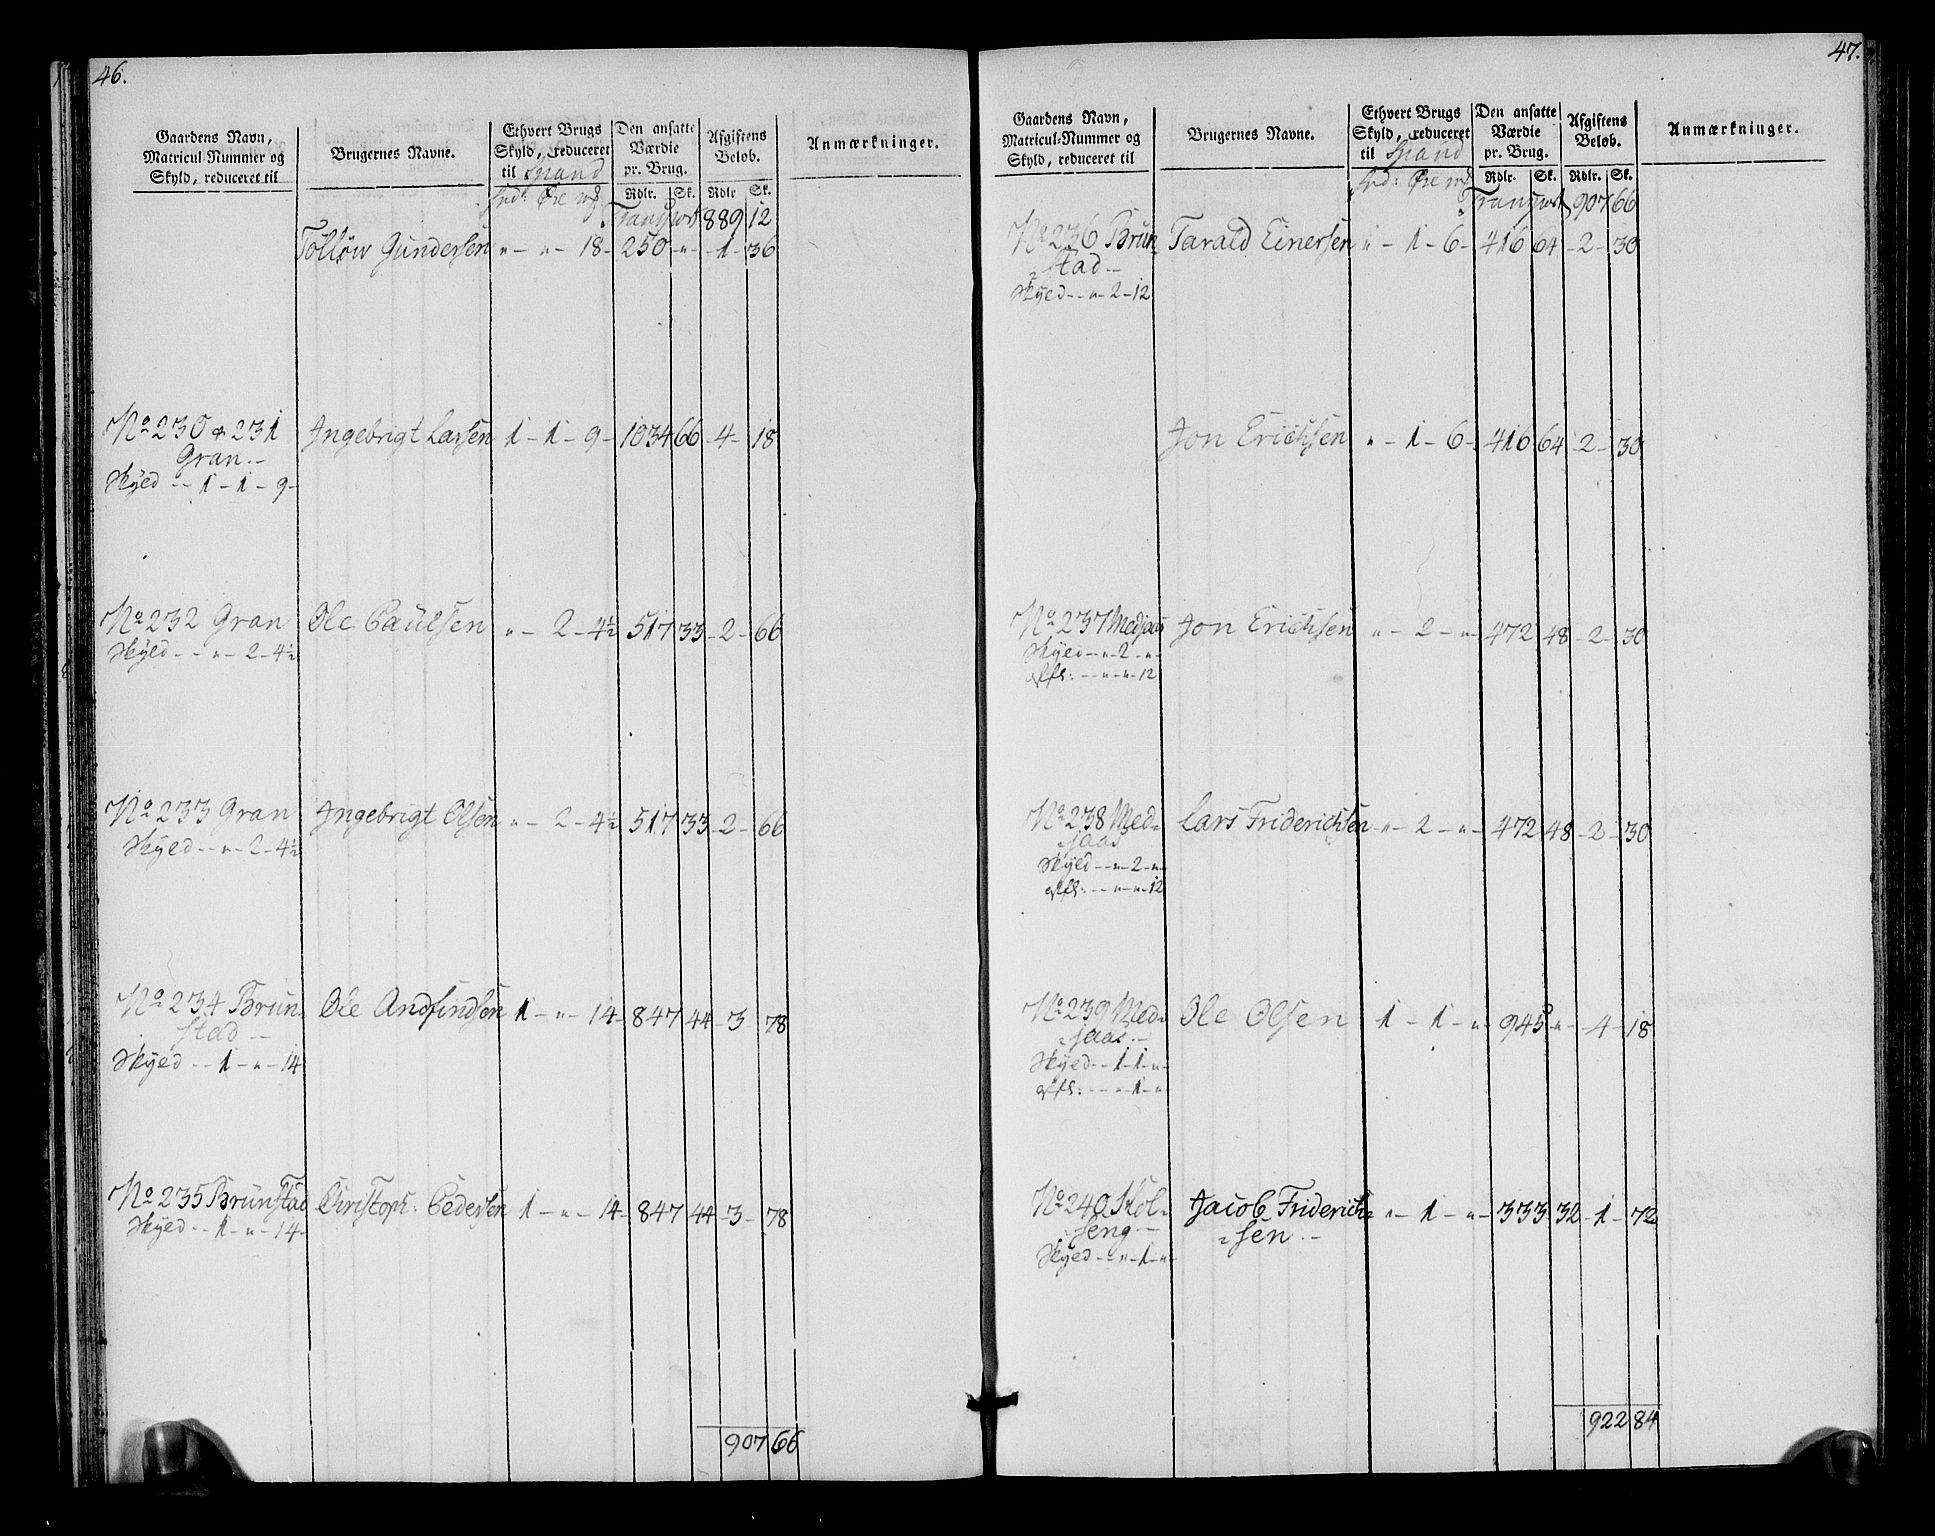 46.
Gaardens Navn, Matricul-Nummer og Skyld, reduceret til
Brugernes Navne.
Ethvert Brugs Skyld, reduceret til Spand
Den ansatte Værdie pr. Brug.
Afgiftens Beløb.
Anmærkninger.
Rdlr. Sk. Rdlr Sk.
Transport 889 12
Tolløw Gundersen " - " - 18 - 250 - " - 1 - 36
No 230 & 231 Ingebrigt Larsen 1 - 1 - 9 - 1034 66 - 4 - 18
Gran. -
Skyld - - 1 - 1 - 9 -
No 232 Gran Ole Paulsen " - 2 - 4½ 517 33 - 2 - 66
Skyld - - " - 2 - 4½
No 233 Gran Ingebrigt Olsen " - 2 - 4½ 517 33 - 2 - 66
Skyld - - " - 2 - 4½
No 234 Brun- Ole Andfindsen 1 - " - 14 - 847 44 - 3 - 78
stad -
Skyld - - 1 - " - 14
No 235 Brunstad Christoph: Pedersen 1 - " - 14 - 847 44 - 3 - 78
Skyld - - 1 - " - 14 -
907 66
47.
Gaardens Navn, Matricul-Nummer og Skyld, reduceret til
Brugernes Navne.
Ethvert Brugs Skyld, reduceret til Spand
Den ansatte Værdie pr. Brug.
Afgiftens Beløb.
Anmærkninger.
Rdlr. Sk. Rdlr. Sk.
Transport 907 66
No 236 Brun- Tarald Einersen " - 1 - 6 - 416 64 - 2 - 30
stad -
Skyld - - " - 2 - 12
Jon Erichsen " - 1 - 6 - 416 64 - 2 - 30
No 237 Medjaas Jon Erichsen " - 2 - " - 472 48 - 2 - 30
Skyld - - " - 2 - " -
- - " - " - 12
No 238 Med- Lars Friderichsen " - 2 - " - 472 48 - 2 - 30
jaas
Skyld - - " - 2 - " -
- - " - " - 12
No 239 Med- Ole Olsen 1 - 1 - " - 945 " - 4 - 18
jaas -
Skyld - - 1 - 1 - " -
- - " - 1 - " -
No 240 Støl- Jacob Friderich- " - 1 - " - 333 32 - 1 - 72
seng - sen. -
Skyld - - " - 1 - " -
922 84